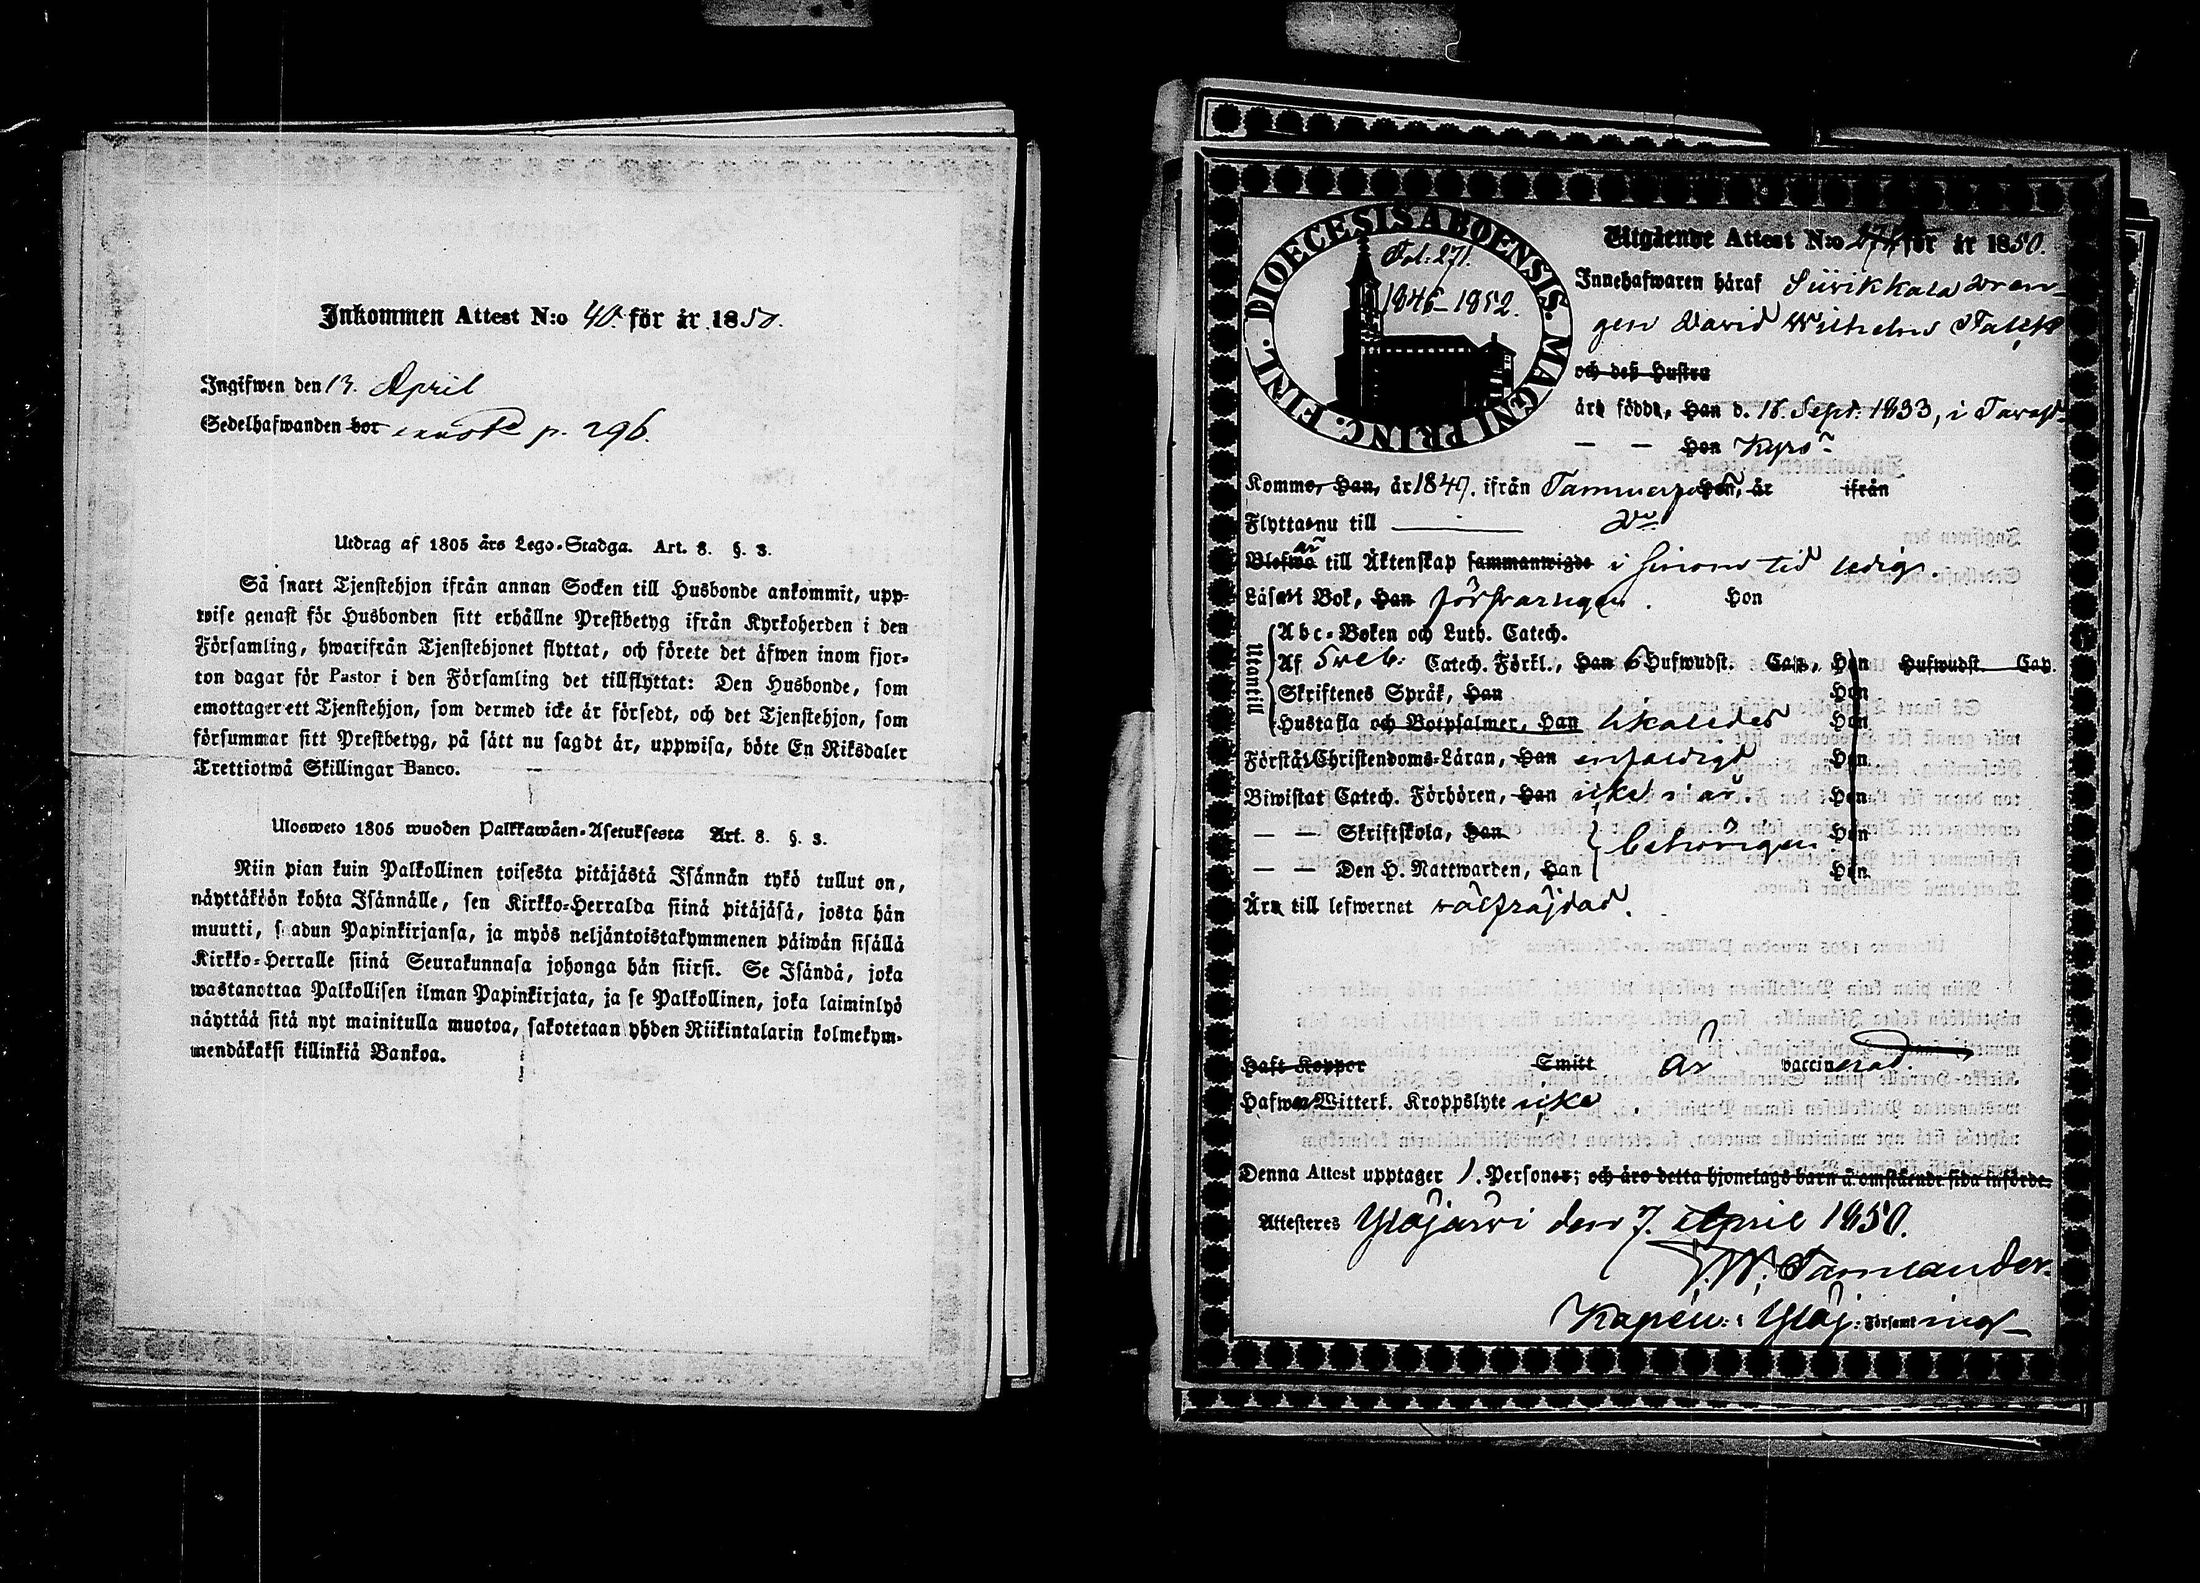 Inkommen Attest N:o 40. för år 1850.
Ingifwen den 13. April
Sedelhafwanden bor p. 296.
Utdrag af 1805 års Lego-Stadga. Art. 8. §. 3.
Så snart Tjenstehjon ifrån annan Socken till Husbonde ankommit, upp-
wise genast för Husbonden sitt erhållne Prestbetyg ifrån Kyrkoherden i den
Församling, hwarifrån Tjenstehjonet flyttat, och förete det äfwen inom fjor-
ton dagar för Pastor i den Församling det tillflyttat: Den Husbonde, som
emottager ett Tjenstehjon, som dermed icke är försedt, och det Tjenstehjon, som
försummar sitt Prestbetyg, på sätt nu sagdt är, uppwisa, böte En Riksdaler
Trettiotwå Skillingar Banco.
Ulosweto 1805 wuoden Palkkawäen-Asetuksesta Art. 8. §. 3.
Niin pian kuin Palkollinen toisesta pitäjästä Isännän tykö tullut on,
näyttäköön kohta Isännälle, sen Kirkko-Herralda siinä pitäjäsä, josta hän
muutti, saadun Papinkirjansa, ja myös neljäntoistakymmenen päiwän sisällä
Kirkko-Herralle siinä Seurakunnasa johonga hän siirsi. Se Isändä, joka
wastanottaa Palkollisen ilman Papinkirjata, ja se Palkollinen, joka laiminlyö
näyttää sitä nyt mainitulla muotoa, sakotetaan yhden Riikintalarin kolmekym-
mendäkaksi killinkiä Bankoa.
DIOECESIS ABOENSIS. MAGNI PRINC. FINL.
Fol: 271.
1846-1852.
Utgående Attest N:o för år 1850.
Innehafwaren häraf Siirikkala dren-
gen David Wilhelm
och deß Hustru
äro födde, Han d. 18. Sept. 1833, i Tavast-
— — Hon Kyro
Komme, Han, år 1849. ifrån Tammerfors Hon, år ifrån
Flytta nu till
Blefwo är till Äktenskap sammanwigde i sinom tid ledig.
Läsa i Bok, Han försvarligen. Hon
Utantill
Abc-Boken och Luth. Catech.
Af Sveb: Catech. Förkl., Han 6 Hufwudst. Cap., Hon Hufwudst. Cap.
Skriftenes Språk, Han Hon
Hustafla och Botpsalmer, Han likaledes Hon
Förstå Christendoms-Läran, Han enfaldigt Hon
Biwistat Catech. Förhören, Han icke i år. Hon
— — Skriftskola, Han behörigen. Hon
— — Den H. Nattwarden, Han Hon
Äro till lefwernet välfräjdad.
Haft Koppor Smitt är vaccinerad.
Hafwer Witterl. Kroppslyte icke.
Denna Attest upptager 1. Personer; och äro detta hjonelags barn å omstående sida införde.
Attesteres Ylöjärvi den 7. April 1850.
Kapell: i Ylöj: Församling